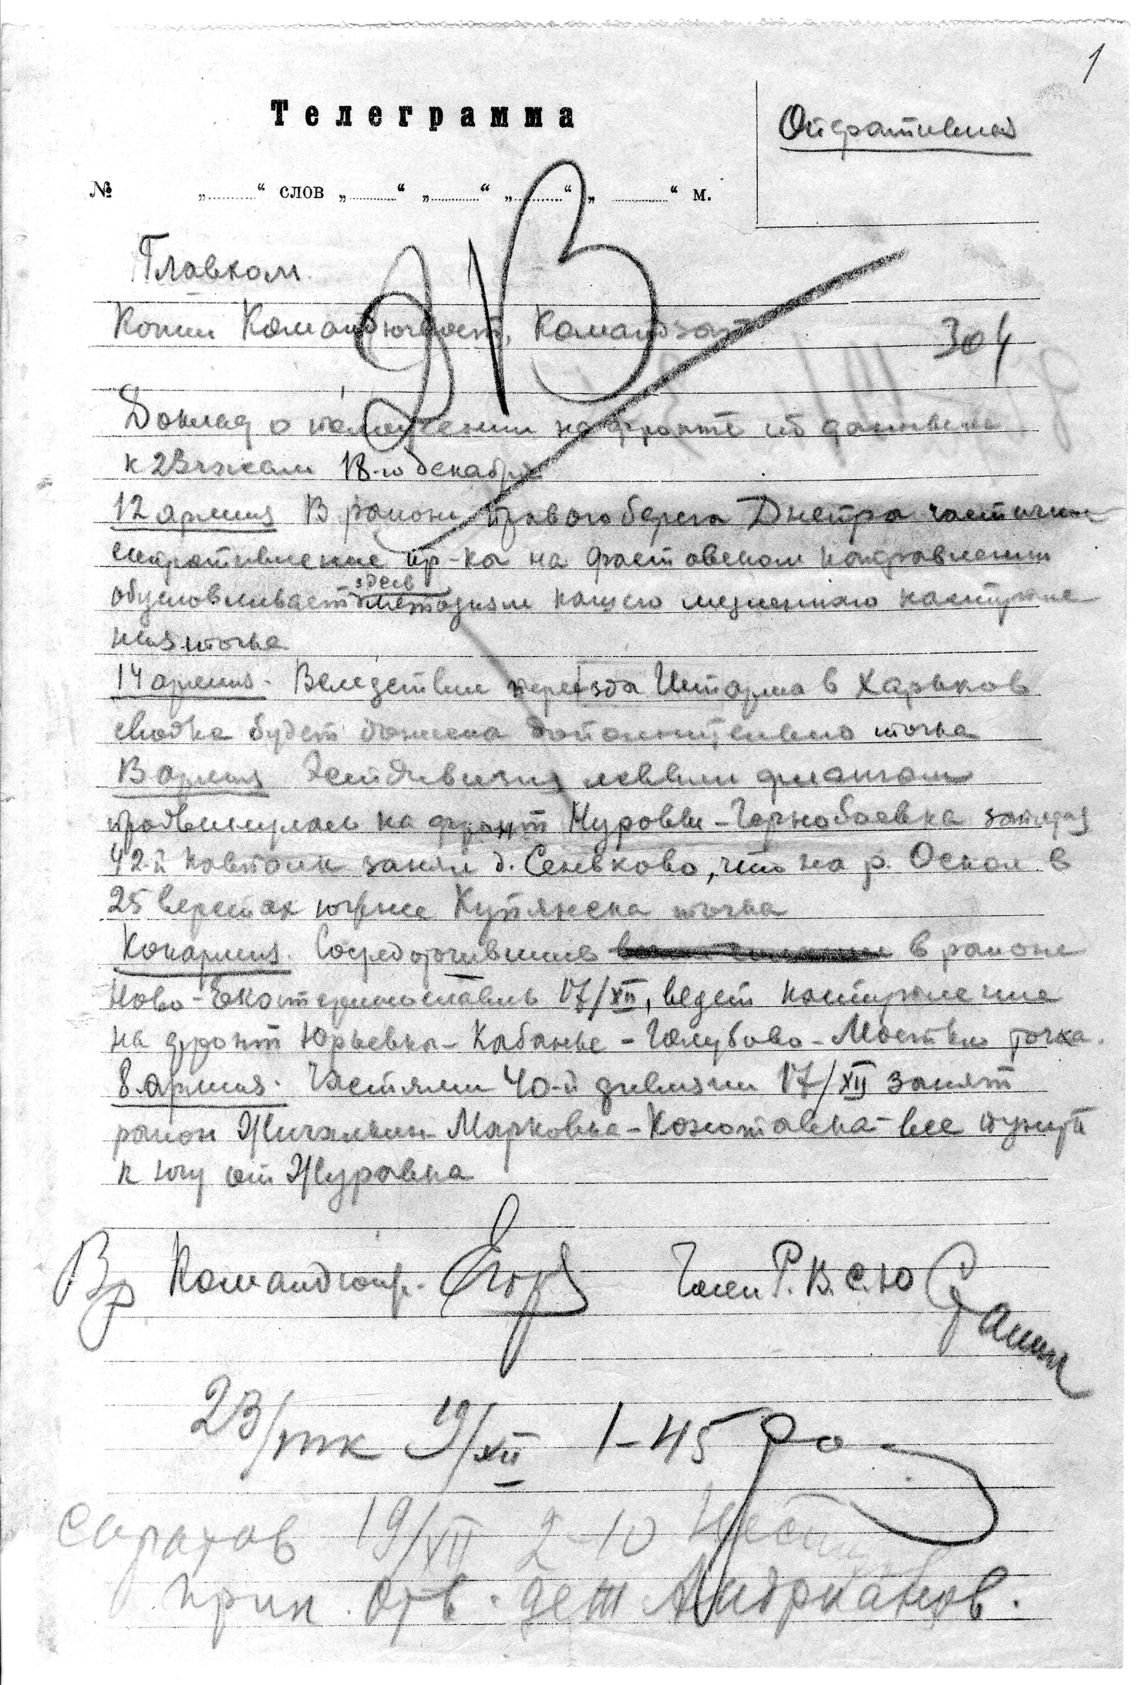 1
Телеграмма
Оперативная
№ „ “ слов „ “ „ “ „ “ „ “ м.
Главком
Копии Командюгвост, Командзап
304
Доклад о положении на фронте по данным
к 23 часам 18-го декабря
12 армия В районе правого берега Днепра частичное
сопротивление пр-ка на фастовском направлении
здесь
обусловливает методизм нашего наступле
ния точка
14 армия. Вследствие переезда Штарма в Харьков
сводка будет дополнительно точка
13 армия левым флангом
продвинулась на фронт Муровы-Чернобаевка
42-й занял д. Сеньково, что на р. Оскол в
25 верстах южнее Купянска точка
Конармия. Сосредоточившись в районе
Ново-Екатеринославль 17/XII, ведет наступление
на фронт Юрьевка-Кабанье-Голубова-Мостки точка.
8 армия. Частями 40-й дивизии 17/XII занят
район Марковка-Конотовка все
к югу от Журавка
Вр Командюж. Егоров Член Р.В.С.Ю Сталин
23/тк 19/XII 1-45
Саратов 19/XII 2-10
прин. отв. деж Андрианов.